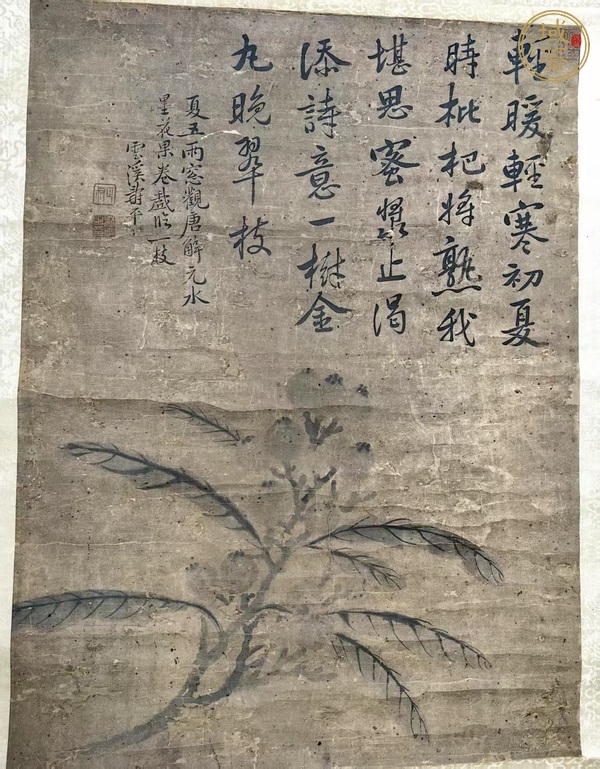 輕暖輕寒初夏
時枇杷將熟我
堪思蜜漿止渴
添詩意一樹金
丸晚翠枝
夏五雨窓觀唐解元水
墨花果卷戲臨一枝
雲溪壽平